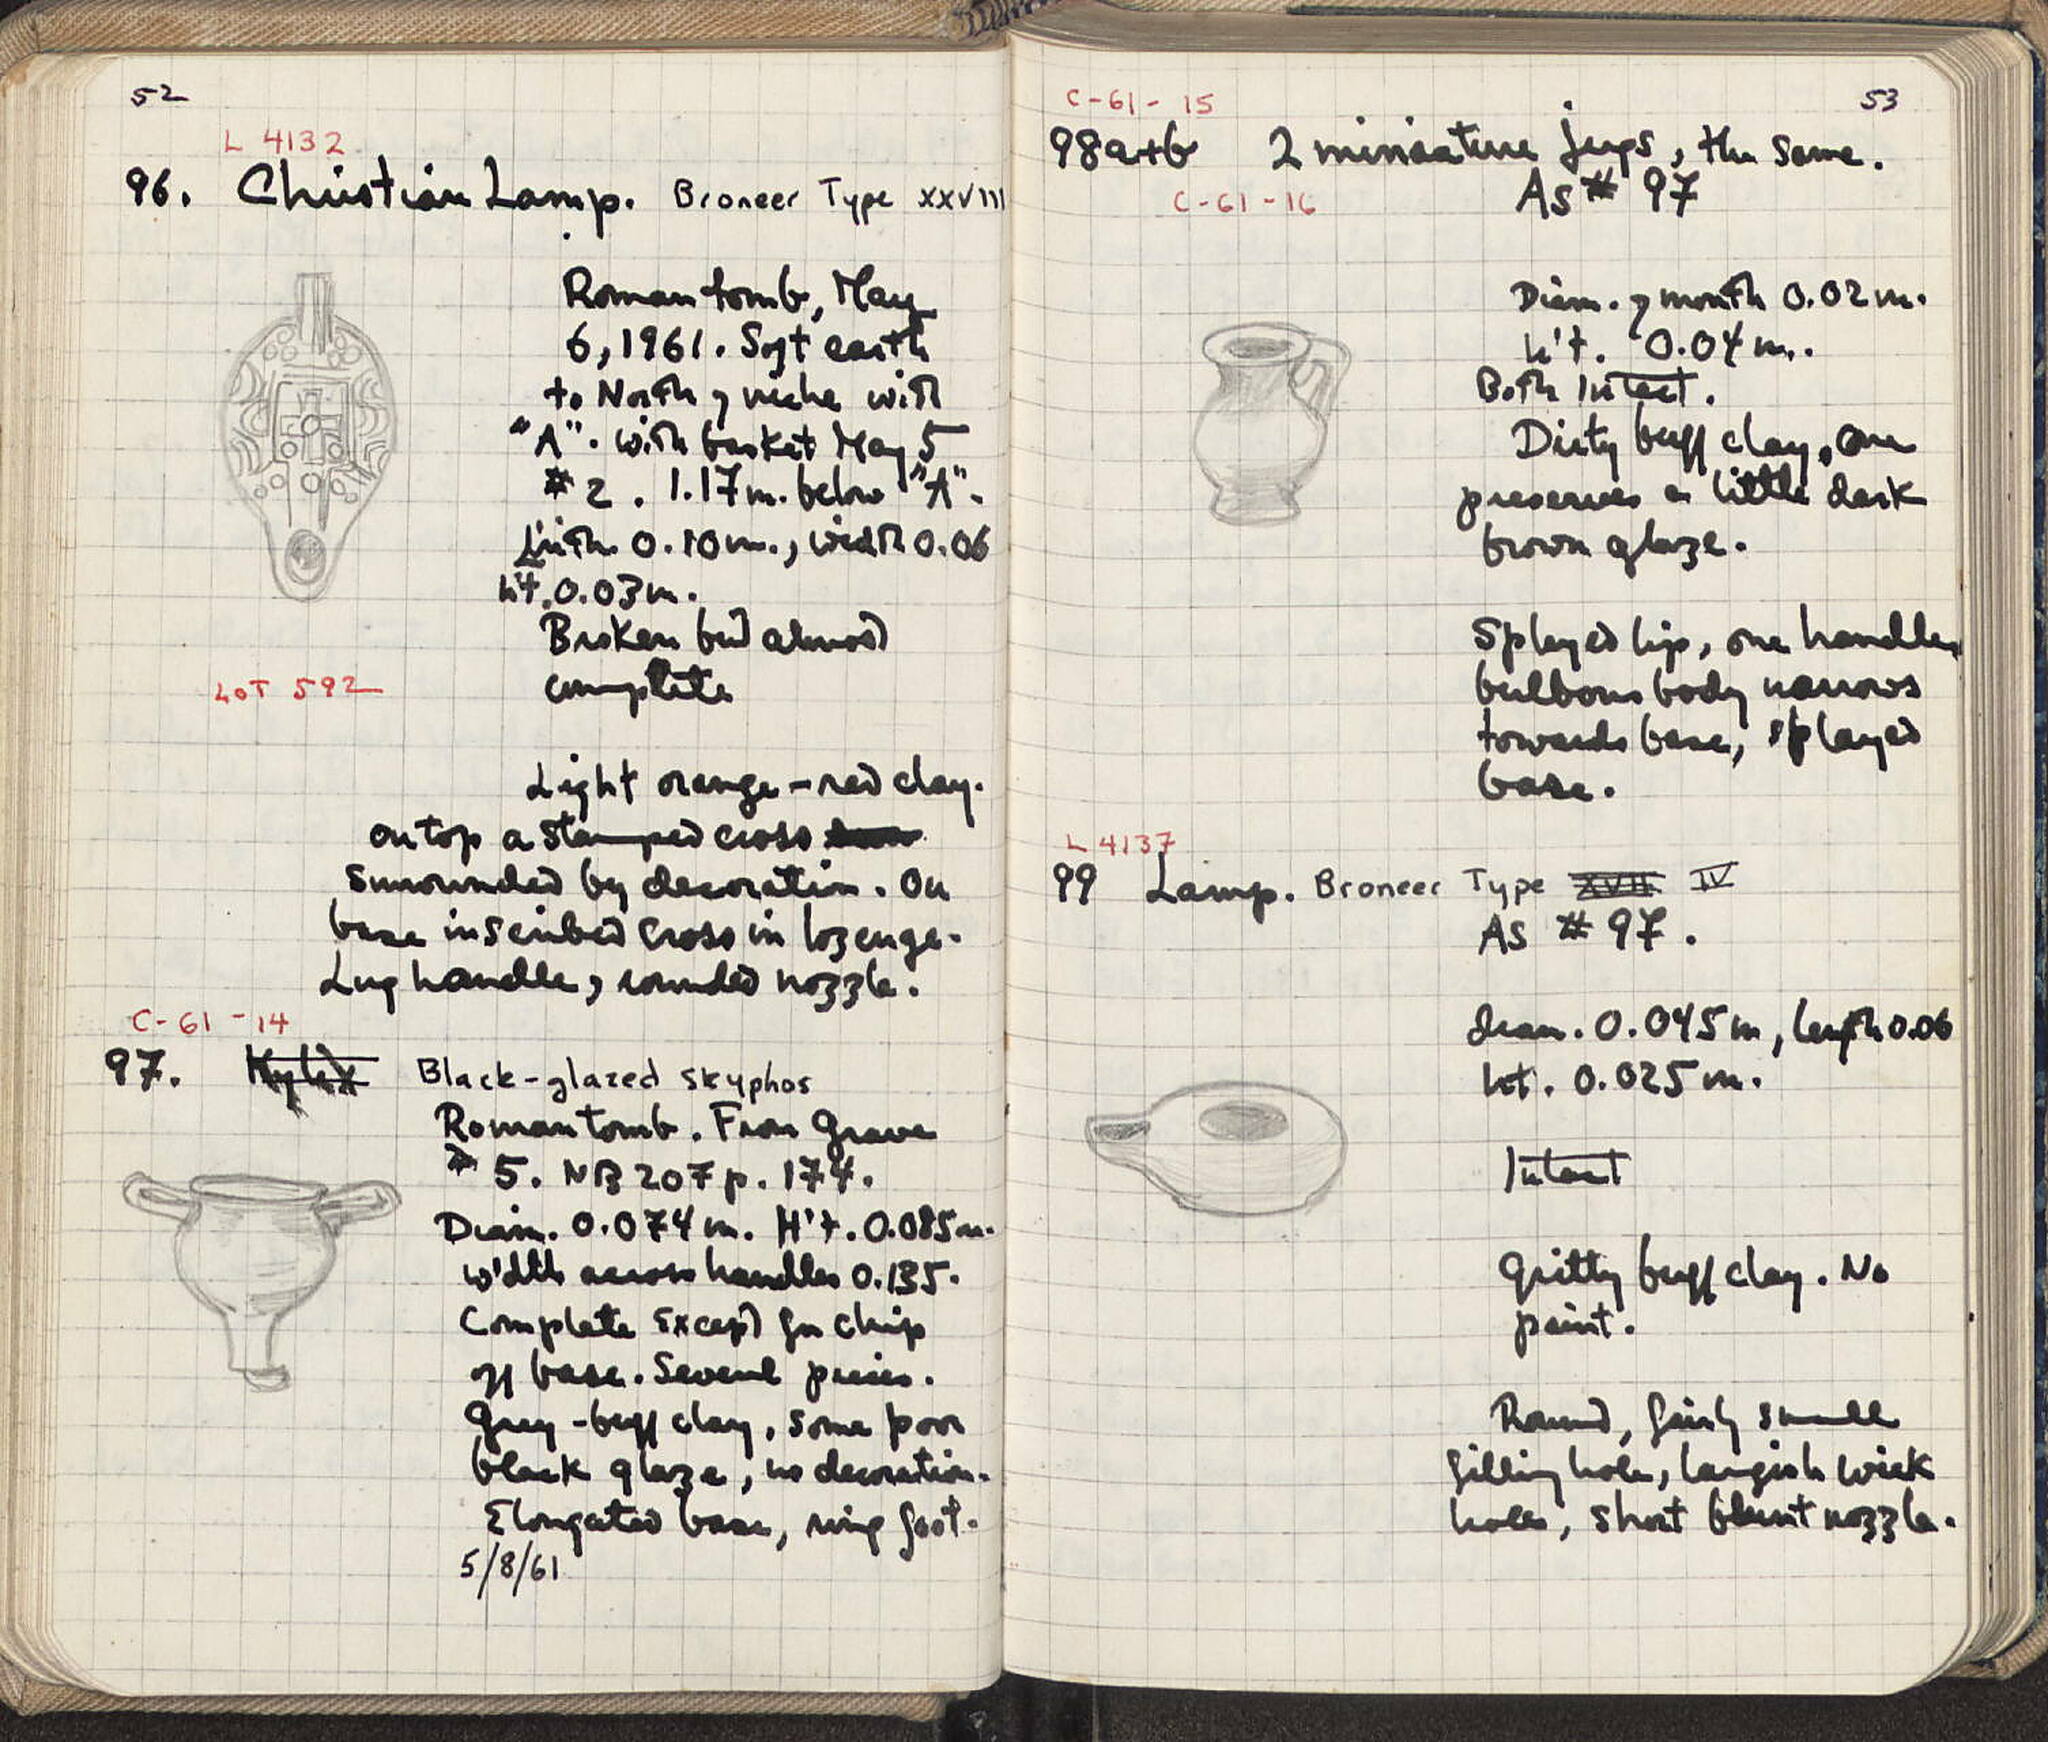 52
L 4132
96. Christian Lamp. Broneer Type XXVIII
Roman tomb, May
6, 1961. Soft earth
to North of niche with
"A". with basket May 5
# 2. 1.17 m. below "A".
L'nth. 0.10 m., width 0.06
h't. 0.03 m.
Broken but almost
complete
LOT 592
Light orange-red clay.
On top a stamped cross
surrounded by decoration. On
base inscribed cross in lozenge.
Lug handle, rounded nozzle.
C-61-14
97. Kylix Black-glazed skyphos
Roman tomb. From Grave
# 5. NB 207 p. 174.
Diam. 0.074 m. H't. 0.085 m.
width across handles 0.135.
Complete except for chip
off base. Several pieces.
Grey-buff clay, some poor
black glaze, no decoration.
Elongated base, ring foot.
5/8/61
53
C-61-15
98a+b 2 miniature jugs, the same.
C-61-16
As # 97
Diam. of mouth 0.02 m.
h't. 0.04 m.
Both Intact.
Dirty buff clay, one
preserves a little dark
brown glaze.
Splayed lip, one handle,
bulbous body narrows
towards base, splayed
base.
L 4137
99 Lamp. Broneer Type XVII IV
As # 97.
diam. 0.045 m, length 0.06
ht. 0.025 m.
Intact
Gritty buff clay. No
paint.
Round, fairly small
filling hole, largish wick
hole, short blunt nozzle.